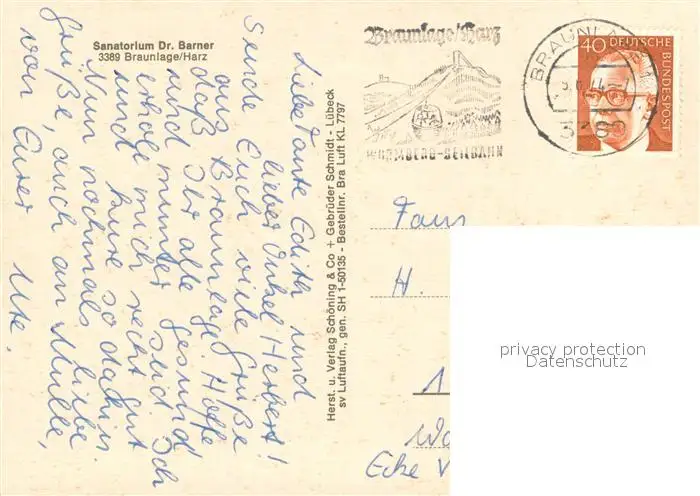 Sanatorium Dr. Barner
3389 Braunlage/Harz
Liebe Tante Edith und
lieber Onkel Herbert!
Sende Euch viele Grüße
aus Braunlage. Hoffe
daß Ihr alle gesund
und munter seid. Ich
erhole mich recht gut
und
Kure so dahin.
Nun nochmals liebe
Grüße, auch an
von Eurer Ute.
Herst. u. Verlag Schöning & Co + Gebrüder Schmidt - Lübeck
sv Luftaufn., gen. SH 1-50135 - Bestellnr. Bra Luft KL 7797
Braunlage/Harz
WURMBERG-SEILBAHN
BRAUNLAGE
40 DEUTSCHE
BUNDESPOST
Fam
H.
1
Ecke
privacy protection
Datenschutz